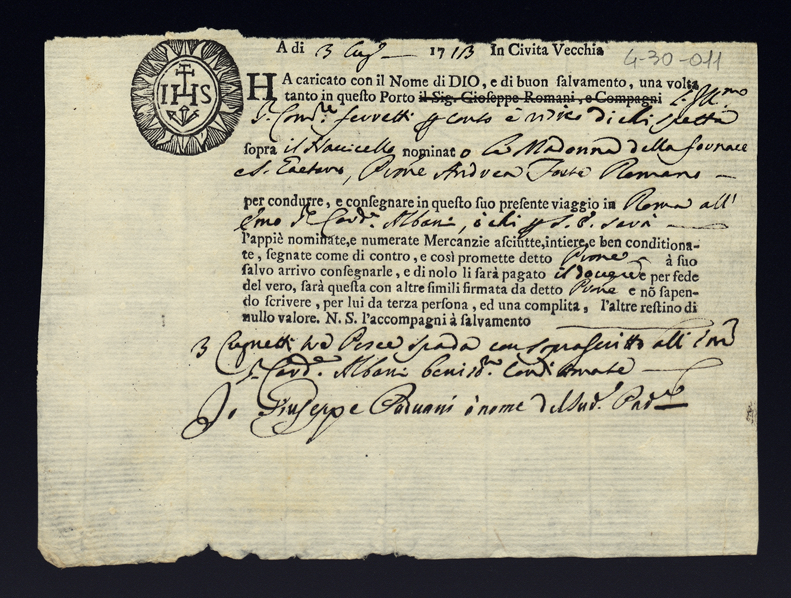 A di 3 Lug.º 1713 In Civita Vecchia
4-30-011
IHS
HA caricato con il Nome di DIO, e di buon salvamento, una volta
tanto in questo Porto il Sig. Gioseppe Romani, e Compagni
Ferretti conto è risico di chi spetta
sopra il Navicello nominato La Madonna della fornace
e S. Gaetano, Prone Andrea Romano
per condurre, e consegnare in questo suo presente viaggio in Roma all'
Emo Sr Card. Albani, ò chi p S. E. sarà
l'appiè nominate, e numerate Mercanzie asciutte, intiere, e ben conditiona-
te, segnate come di contro, e così promette detto Prone à suo
salvo arrivo consegnarle, e di nolo li sarà pagato il dovere per fede
del vero, sarà questa con altre simili firmata da detto Prone e nõ sapen-
do scrivere, per lui da terza persona, ed una complita, l'altre restino di
nullo valore. N. S. l'accompagni à salvamento
3 Pesce spada con soprascritto all' Emo
Sr Card. Albani
Io Giuseppe Paduani à nome del Sud. Pad.